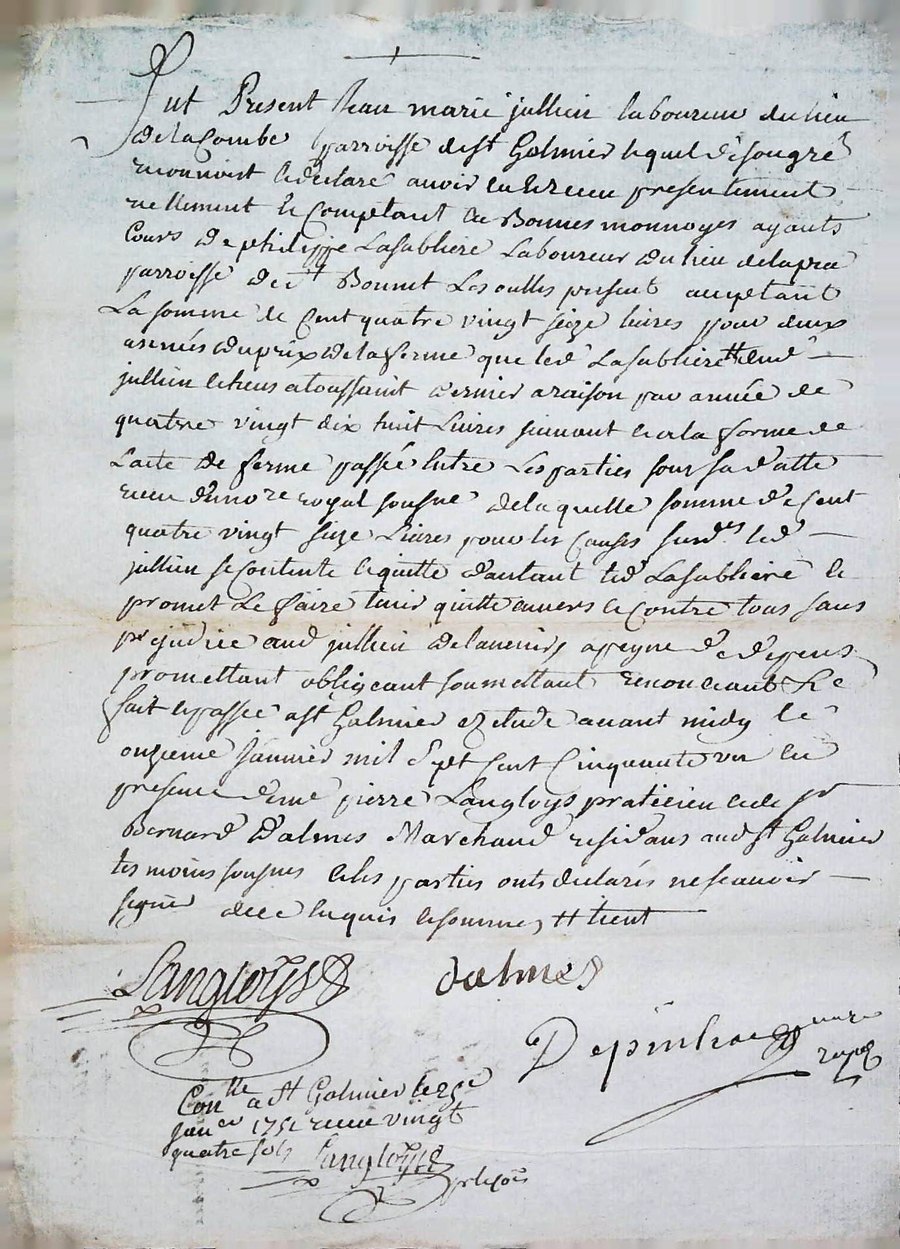 fut Present Jean marie jullien laboureur du lieu
de la Combe parroisse de st Galmier lequel de son gré
reconnoist et declare avoir eu et receu presentement
reellement et Comptant en Bonnes monnoyes ayants
Cours de philippe Lasabliere Laboureur du lieu de lapra
parroisse de st Bonnet Les oulles present acceptant
La somme de Cent quatre vingt seize livres pour deux
années du prix de la ferme que led Lasabliere tt dud
jullien echeus a toussaint dernier a raison par année de
quatre vingt dix huit Livres suivant et a la forme de
Lacte de ferme passée Entre Les parties sous sa datte
receu du no re royal sousne de laquelle somme de Cent
quatre vingt seize Livres pour les Causes susd es led
jullien se Contente et quitte d'autant led Lasabliere et
promet Le faire tenir quitte envers et Contre tous sans
prejudice aud jullien de lavenir, a peyne de depens
promettant obligeant soumettant renonceant &c
fait et passée a st Galmier etude avant midy le
onzieme Janvier mil Sept cent Cinquante un en
presence de me pierre Langloys praticien et de sr
Bernard Dalmes Marchand residans aud st Galmier
tesmoins sousnes et les parties onts declarés ne scavoir
signer de ce enquis et sommes, tt tient
Langloys dalmes
Depinhac no re
royal
Con lle a st Galmier le
janer 1751 receu vingt
quatre sols Langloys